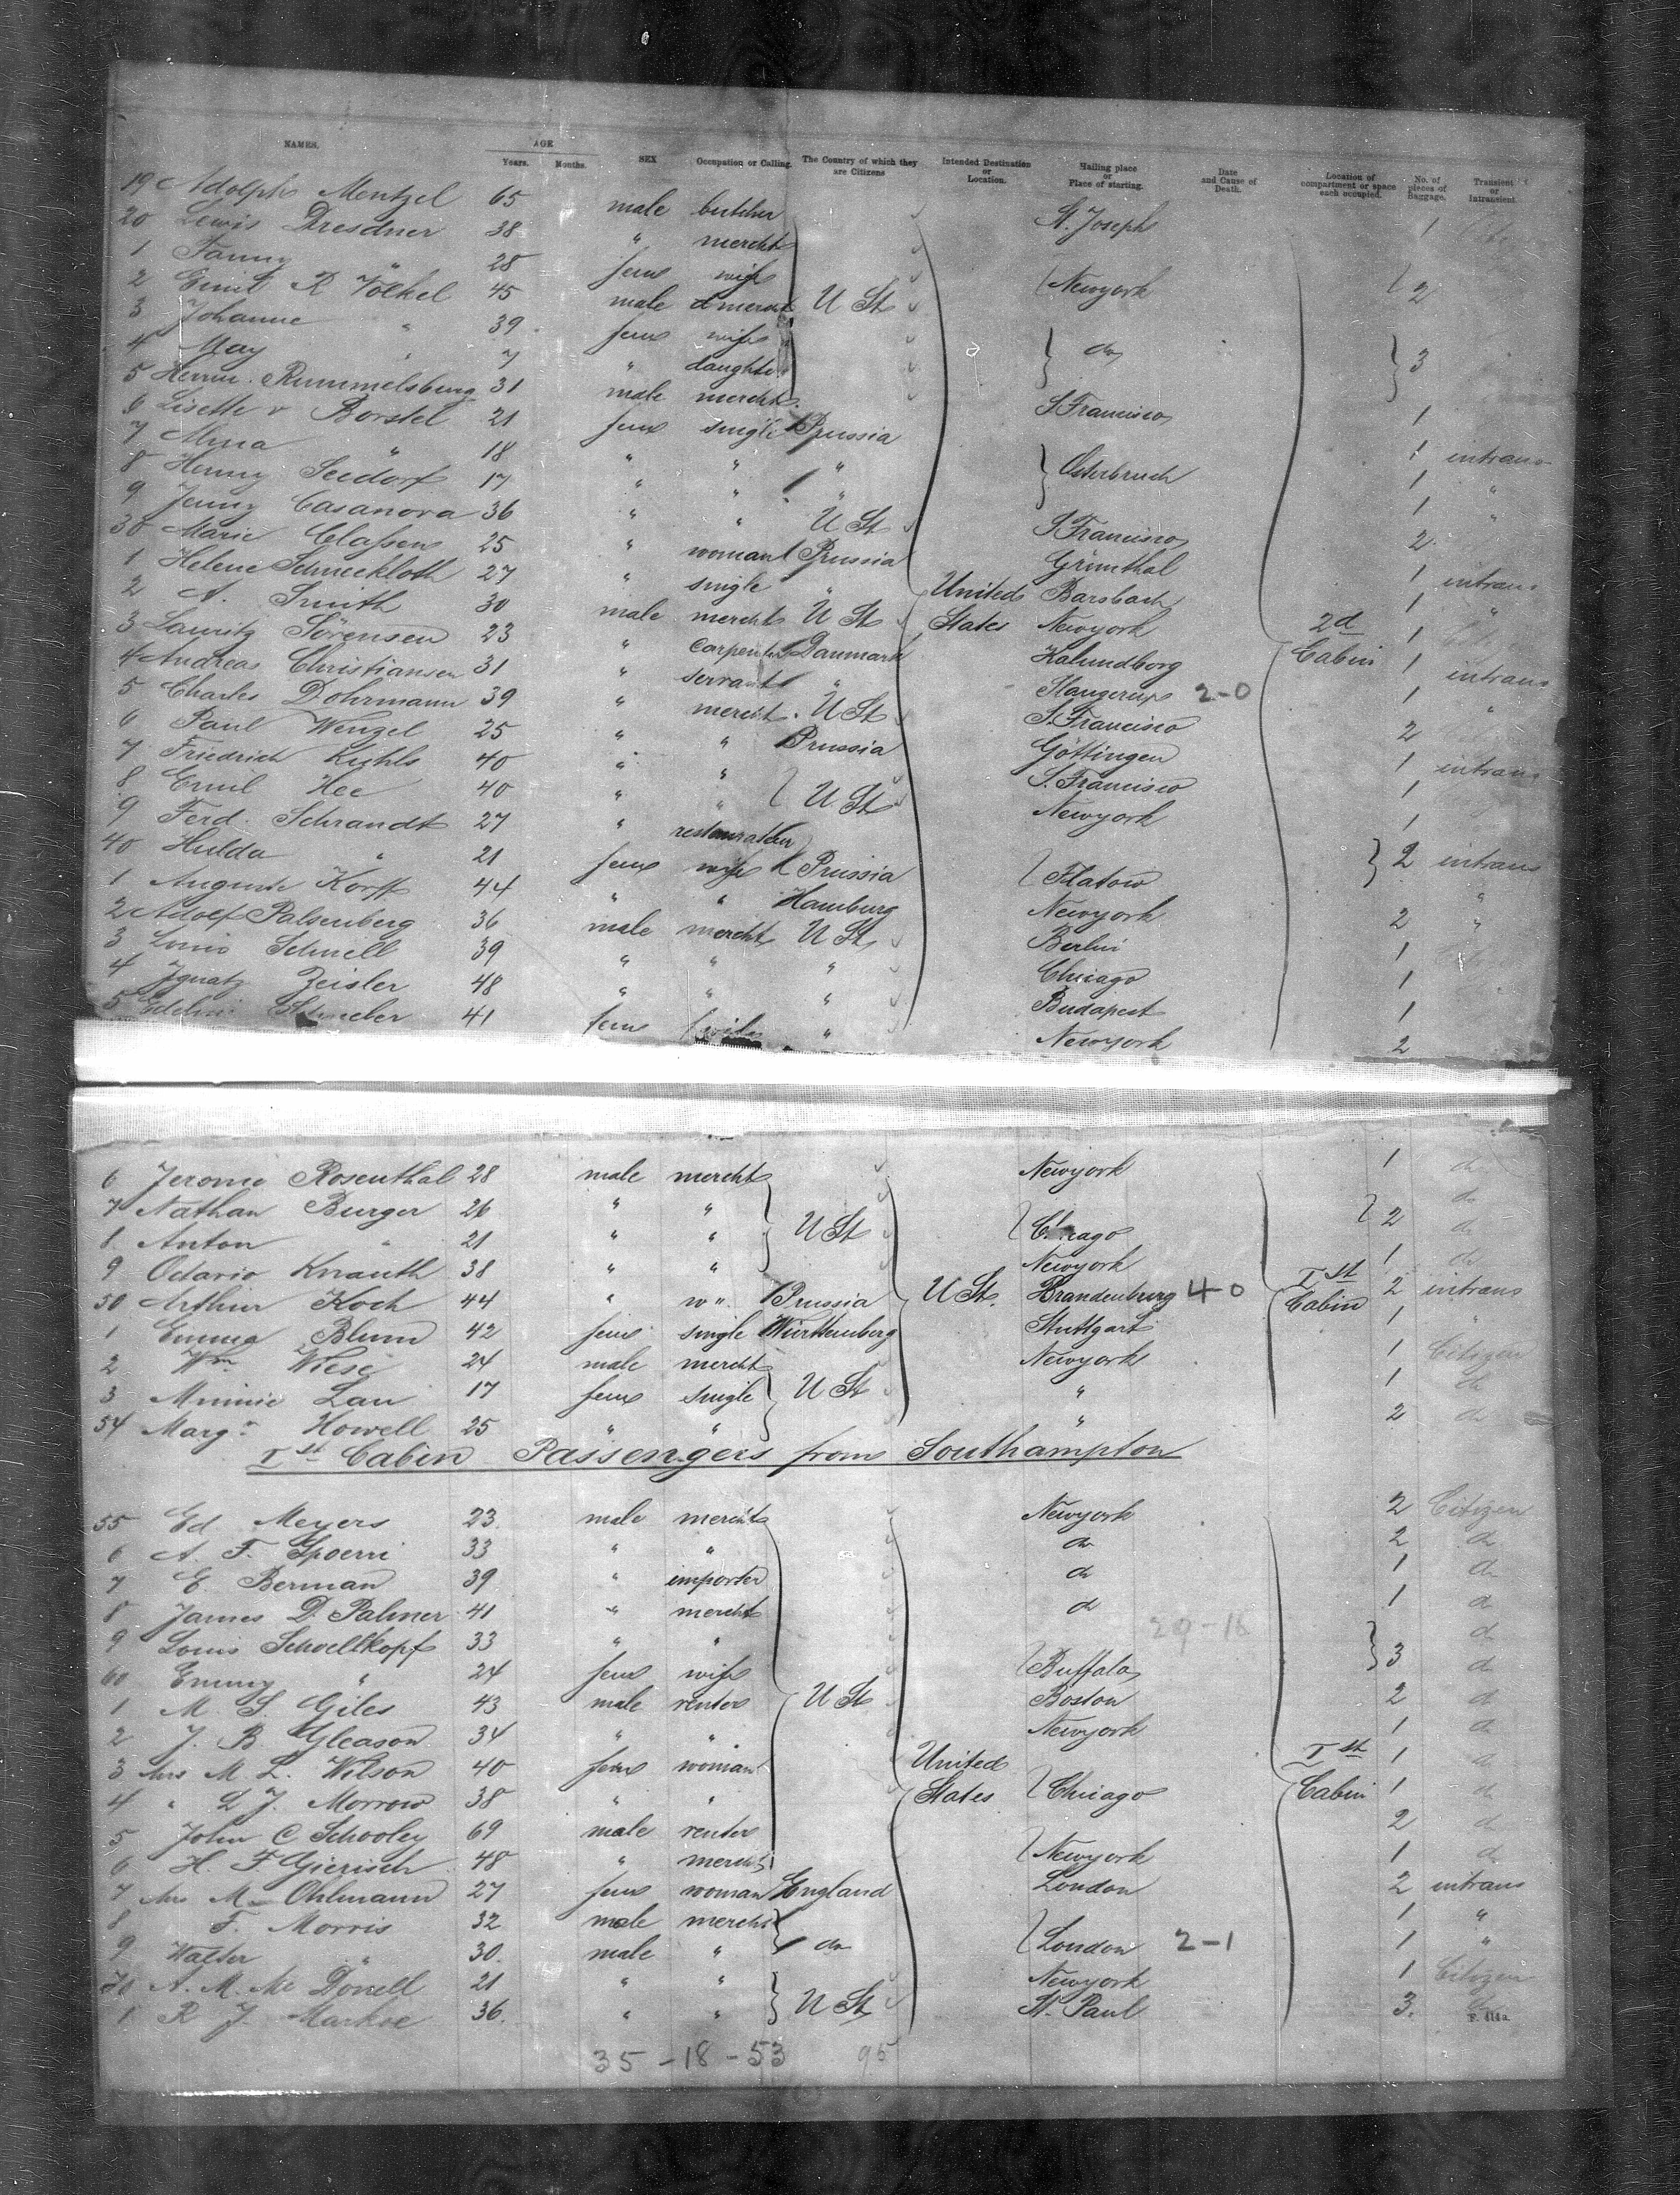 NAMES. AGE Years. Months. SEX Occupation or Calling. The Country of which they are Citizens Intended Destination or Location. Hailing place or Place of starting. Date and Cause of Death. Location of compartment or space each occupied. No. of pieces of Baggage. Transient or Intransient.
19 Adolph Mentzel 65 male butcher St. Joseph 1
20 Lewis Dresdner 38 " mercht
1 Fanny " 28 fem wife Newyork 2
2 Emil R Völkel 45 male mercht U St
3 Johanne " 39 fem wife do 3
4 May " 7 " daughter
5 Herm. Rummelsburg 31 male mercht S. Francisco 1
6 Lisette v Borstel 21 fem single Prussia 1 intrans
7 Alma " 18 " " " Osterbruch 1 "
8 Henny Seedorf 17 " " " 1 "
9 Jenny Casanova 36 " " U St S. Francisco 2
30 Marie Claßen 25 " woman Prussia Grünthal 1 intrans
1 Helene Schneekloth 27 " single " United Barsbach 1 "
2 A. Smith 30 male mercht U St States Newyork 2d 1
3 Lauritz Sörensen 23 " carpenter Danmark Kalundborg Cabin 1 intrans
4 Andreas Christiansen 31 " servant " Slangerup 2-0 1 "
5 Charles Dohrmann 39 " mercht. U St S. Francisco 2
6 Paul Wenzel 25 " " Prussia Göttingen 1 intrans
7 Friedrich Kuhls 40 " " S. Francisco 1
8 Emil Hee 40 " " U St Newyork 1
9 Ferd. Schrandt 27 " restaurateur
40 Hulda " 21 fem wife Prussia Flatow 2 intrans
1 Auguste Korff 44 " " Hamburg Newyork 2 "
2 Adolf Palsenberg 36 male mercht U St Berlin 1
3 Louis Schnell 39 " " " Chicago 1
4 Ignatz Zeisler 48 " " " Budapest 1
5 Schneber 41 fem " Newyork 2
6 Jerome Rosenthal 28 male mercht Newyork 1 do
7 Nathan Burger 26 " " do
8 Anton " 21 " " U St Chicago 2 do
9 Octavio Knauth 38 " " Newyork Ist 1 do
50 Arthur Koch 44 " " Prussia U St. Brandenburg 4-0 Cabin 2 intrans
1 Emma Blum 42 fem single Württemberg Stuttgart 1 "
2 Wm Wiese 24 male mercht Newyork 1 Citizen
3 Minnie Lau 17 fem single U St " 1 do
54 Margr. Howell 25 " " " 2 do
Ist Cabin Passengers from Southampton
55 Ed Meyers 23. male mercht Newyork 2 Citizen
6 A. F. Spoerri 33 " " do 2 do
7 E. Berman 39 " importer do 1 do
8 James D. Palmer 41 " mercht do 1 do
29-18
9 Louis Schoellkopf 33 " " do
60 Emmy " 24 fem wife Buffalo 3 do
1 M. S. Giles 43 male renter U St Boston 2 do
2 J. B Gleason. 34 " " Newyork 1 do
3 Mrs M. L. Wilson 40 fem woman United Ist 1 do
4 " L. J. Morrow 38 " " States Chicago Cabin 1 do
5 John C Schooley 69 male renter 2 do
6 H. F Gierisch 48 " mercht Newyork 1 do
7 Mrs M. Ohlmann 27 fem woman England London 2 intrans
8 F. Morris 32 male mercht 1 "
9 Walter " 30. male " do London 2-1 1 "
70 A. M. Mc Donell 21 " " Newyork 1 Citizen
1 R J. Markoe 36. " " U St St. Paul 3. do
F. 414a.
35-18-53 95